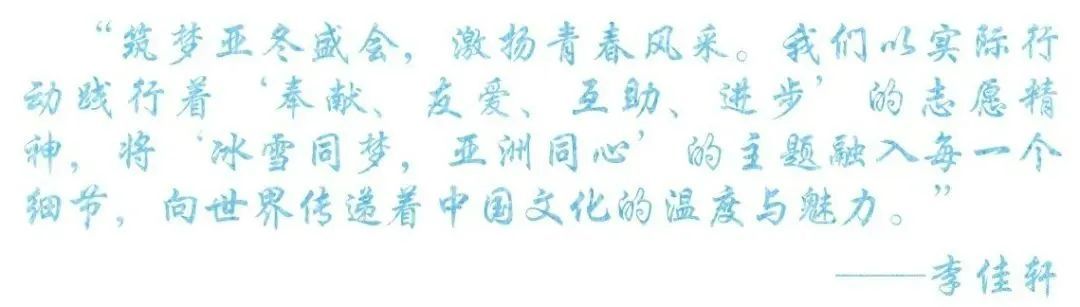 “筑梦亚冬盛会，激扬青春风采。我们以实际行
动践行着‘奉献、友爱、互助、进步’的志愿精
神，将‘冰雪同梦，亚洲同心’的主题融入每一个
细节，向世界传递着中国文化的温度与魅力。”
——李佳轩